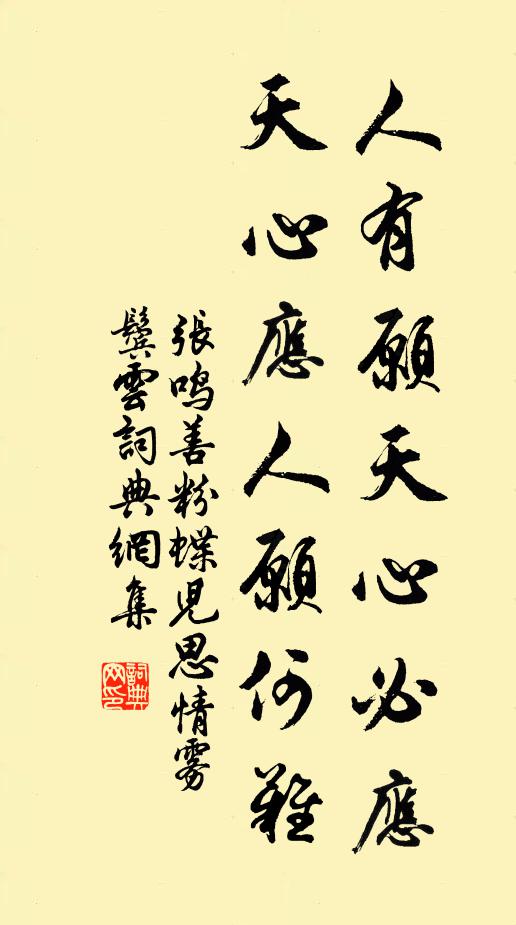 人有願天心必應
天心應人願何難
張鳴善粉蝶児思情雾
鬓雲詞典網集
詞典网印